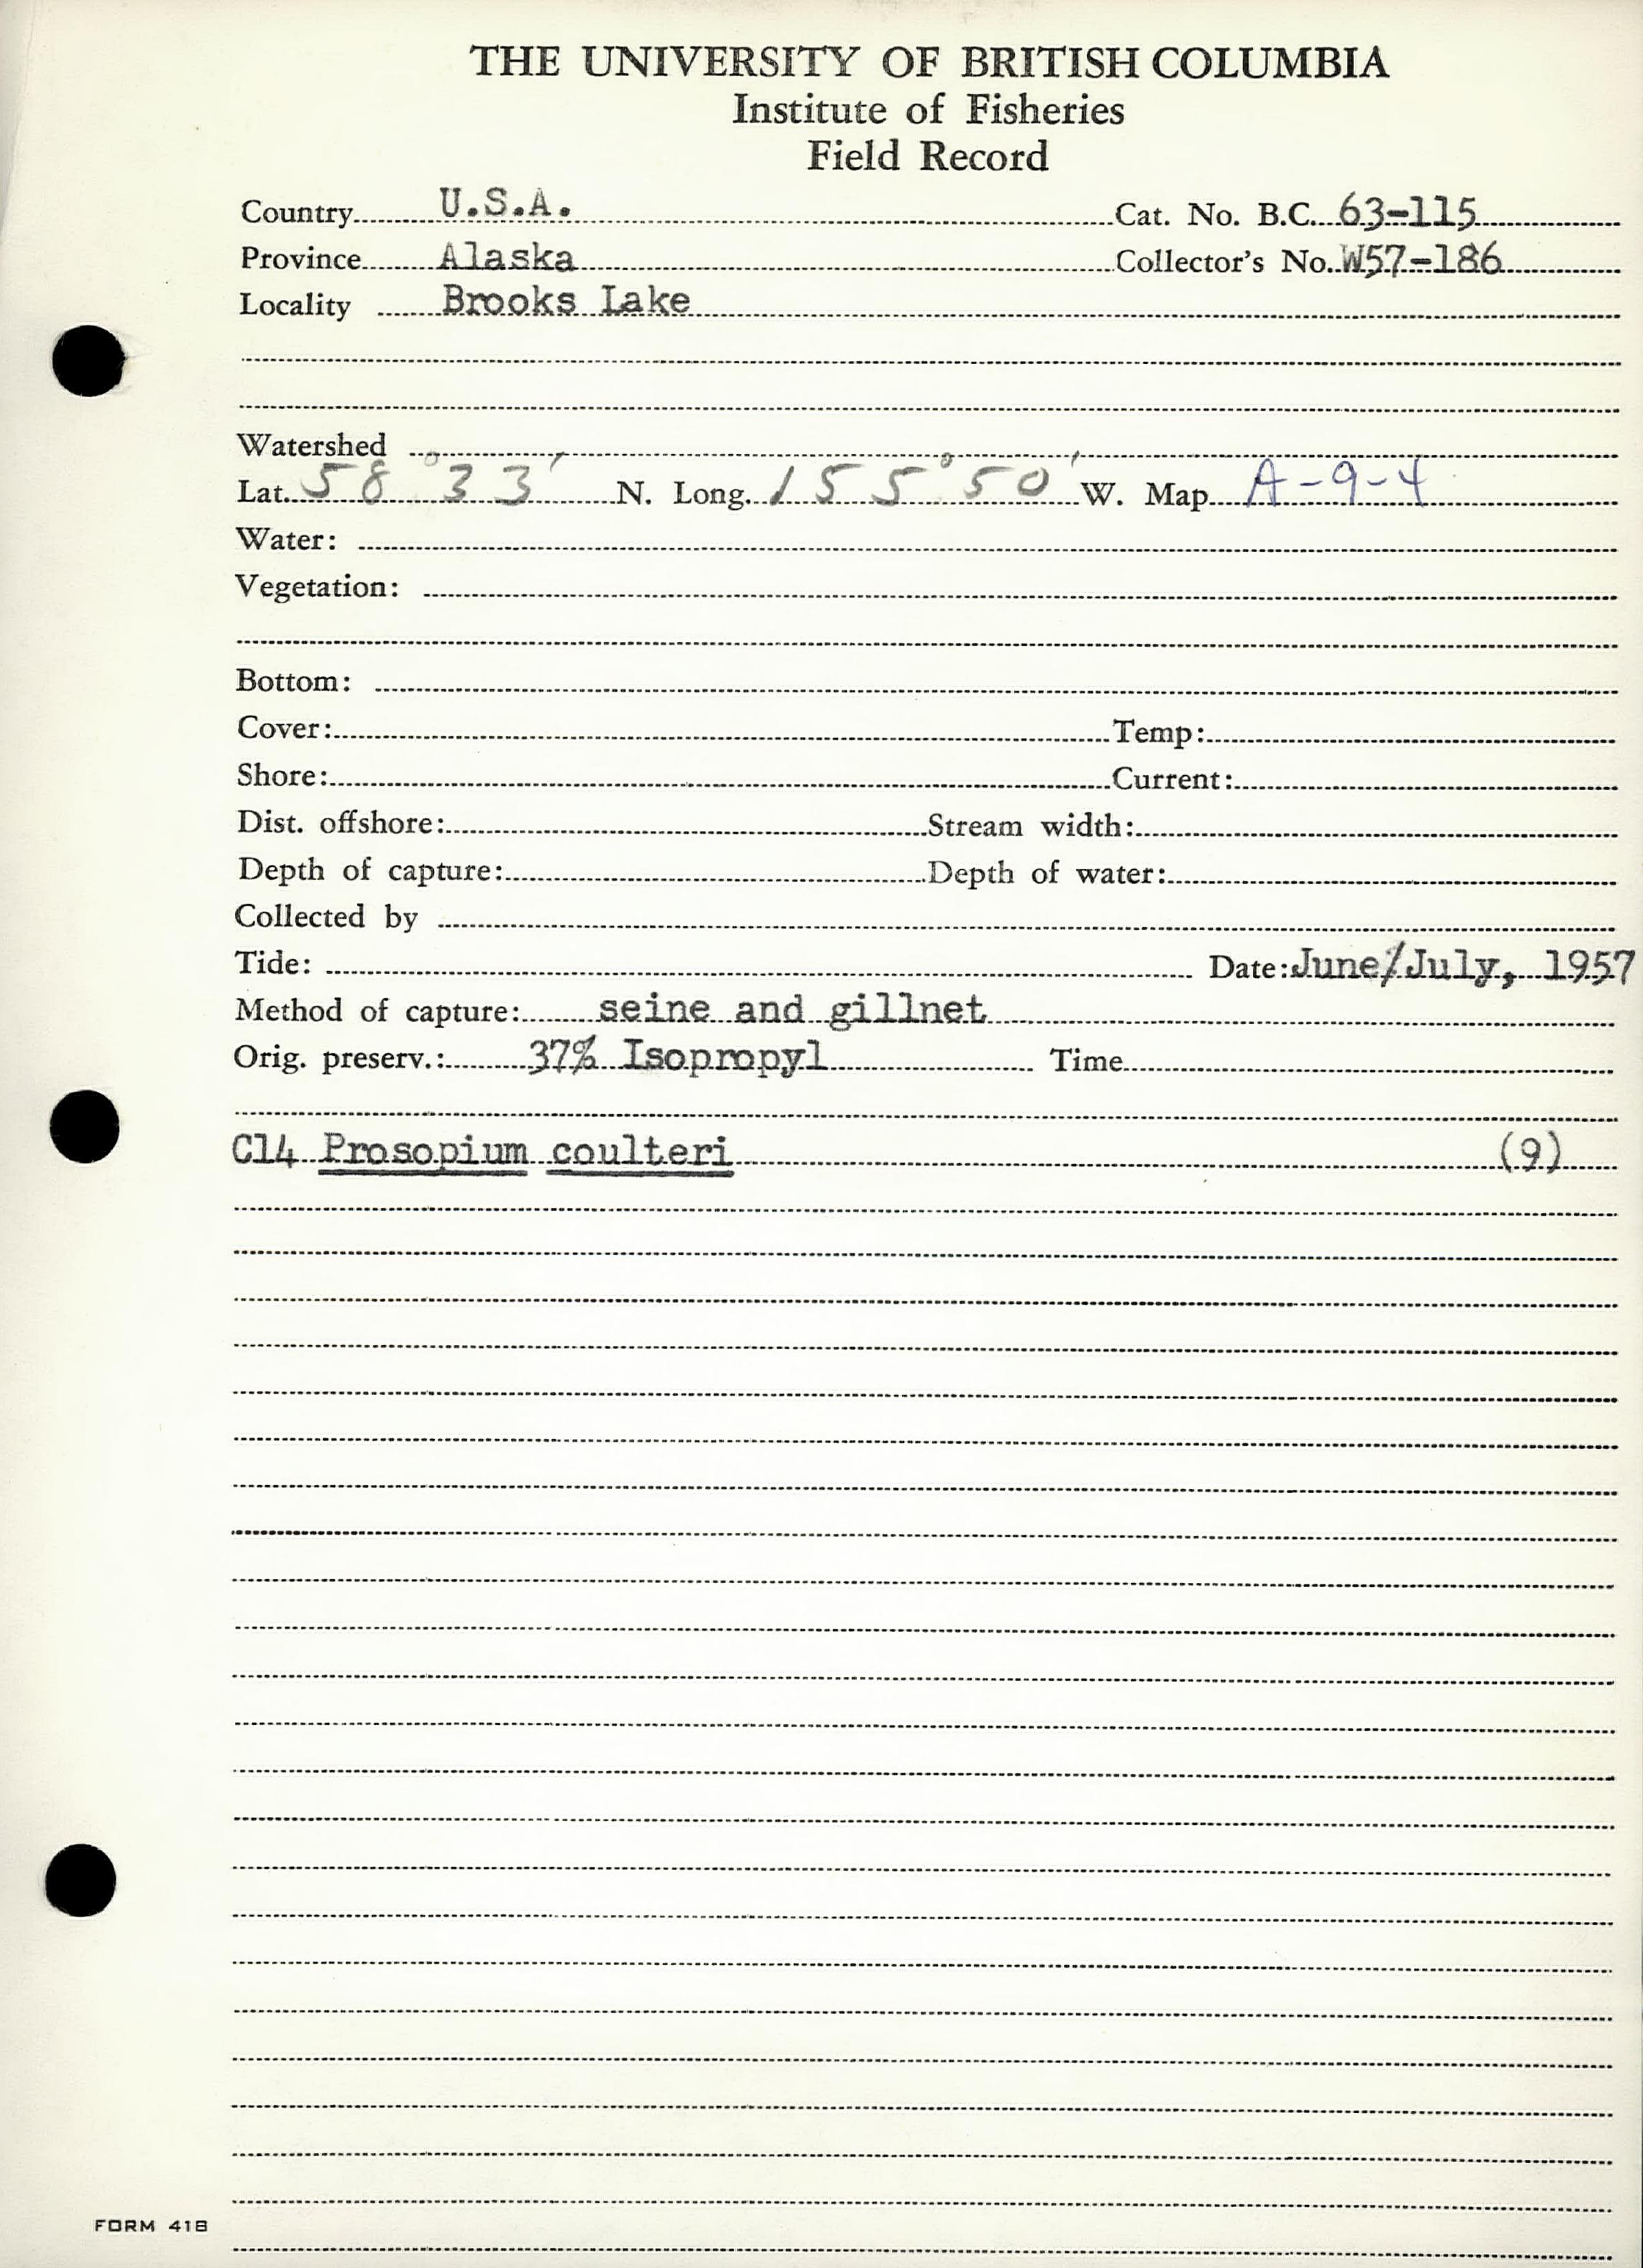 THE UNIVERSITY OF BRITISH COLUMBIA
Institute of Fisheries
Field Record
Country U.S.A. Cat. No. B.C. 63-115
Province Alaska Collector's No. W57-186
Locality Brooks Lake
Watershed
Lat. 58° 33' N. Long. 155° 50' W. Map A-9-4
Water:
Vegetation:
Bottom:
Cover: Temp:
Shore: Current:
Dist. offshore: Stream width:
Depth of capture: Depth of water:
Collected by
Tide: Date: June/July, 1957
Method of capture: seine and gillnet
Orig. preserv.: 37% Isopropyl Time
C14 Prosopium coulteri (9)
FORM 41B